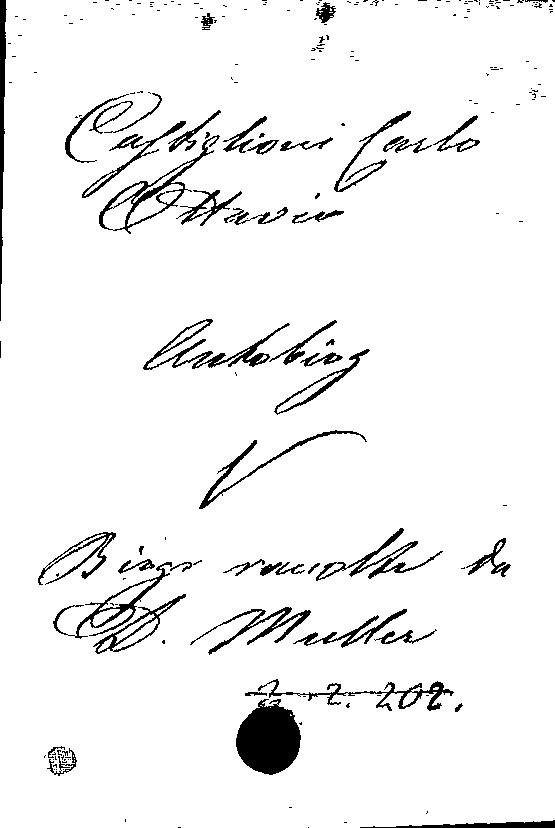 Castiglioni Carlo
Ottavio
Autobiog
V
Biogr raccolte da
D. Muller
Z. 202.